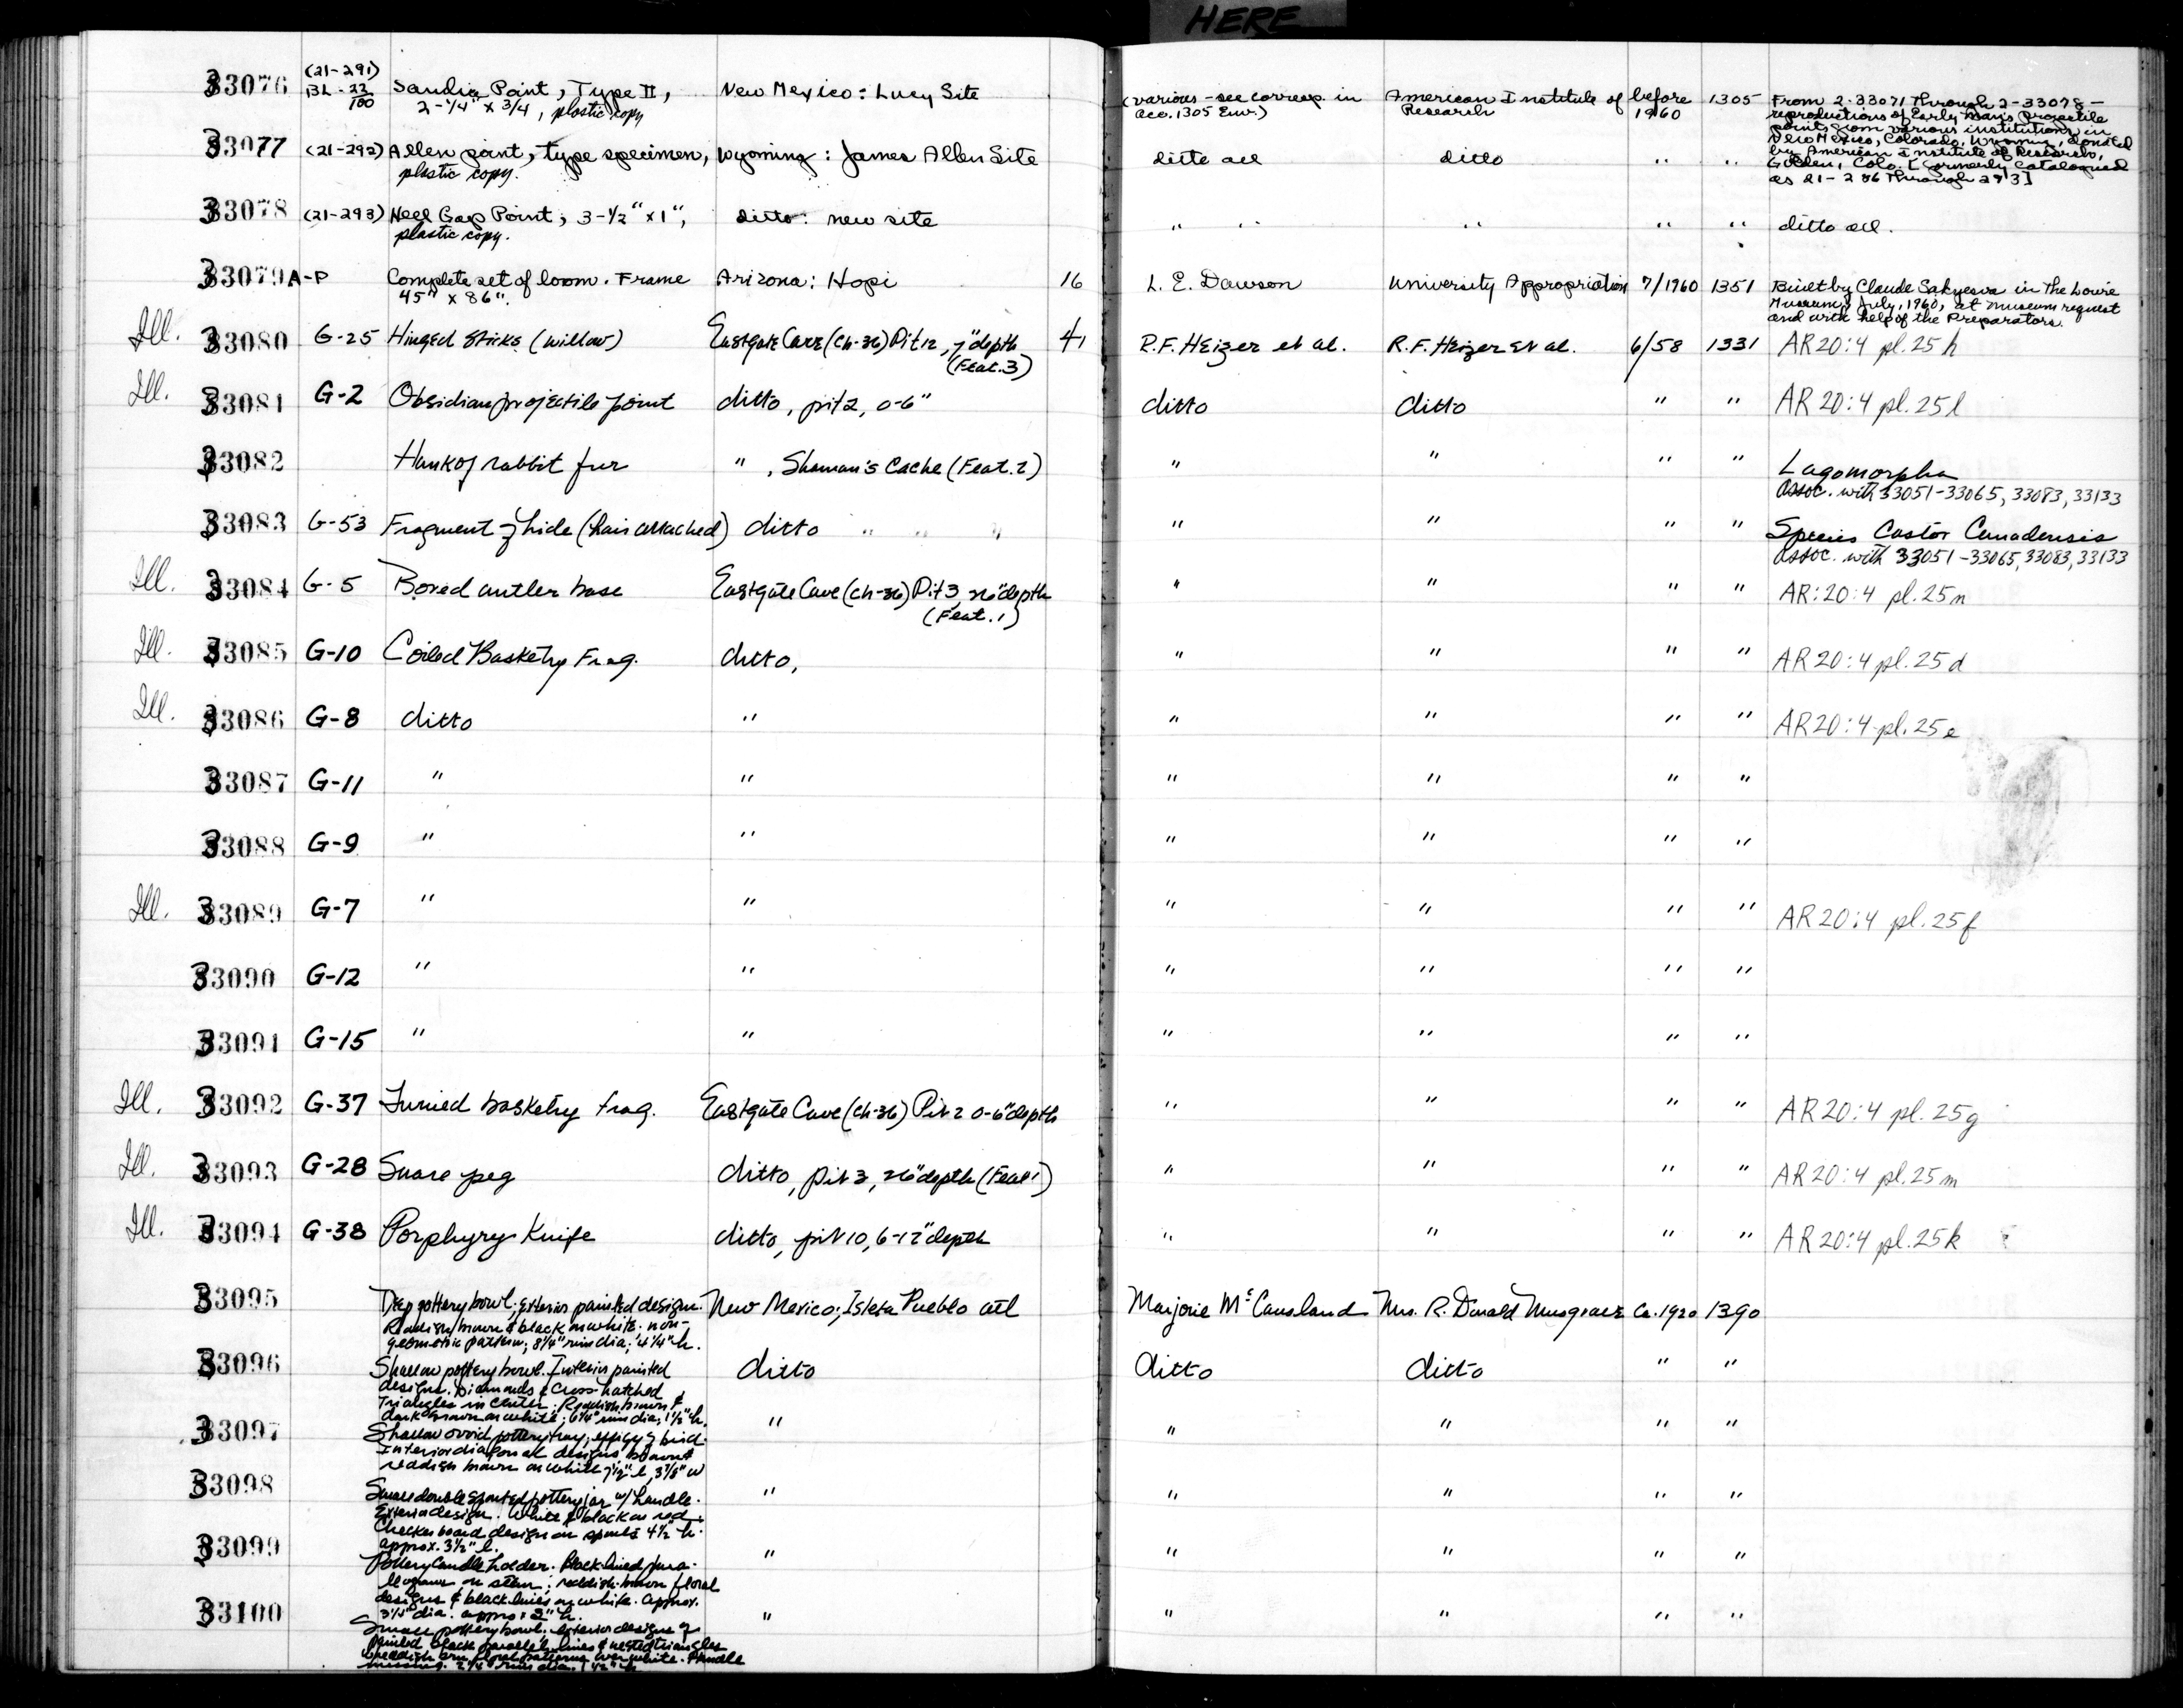 HERE
33076 (21-291) BL-22/100 Sandia Point, Type II, New Mexico: Lucy Site (various - see corresp. in American Institute of before 1305 From 2-33071 through 2-33078 -
2-1/4" x 3/4, plastic copy acc. 1305 Env.) Research 1960 reproductions of Early Man's projectile
points from various institutions in
New Mexico, Colorado, Wyoming, donated
33077 (21-292) Allen point, type specimen, Wyoming: James Allen Site ditto all ditto " " by American Institute of Research,
plastic copy. Golden, Colo. [formerly catalogued
as 21-286 through 293]
33078 (21-293) Hell Gap Point, 3-1/2" x 1", ditto: new site " " " " " ditto all.
plastic copy.
33079 A-P Complete set of loom. Frame Arizona: Hopi 16 L. E. Dawson University Appropriation 7/1960 1351 Built by Claude Sakyesva in the Lowie
45" x 86". Museum, July, 1960, at museum request
and with help of the Preparators.
Ill. 33080 G-25 Hinged sticks (willow) Eastgate Cave (Ch-36) Pit 12, 7" depth 4 R.F. Heizer et al. R.F. Heizer et al. 6/58 1331 AR 20:4 pl. 25h
(Feat. 3)
Ill. 33081 G-2 Obsidian projectile point ditto, pit 2, 0-6" ditto ditto " " AR 20:4 pl. 25l
33082 Hank of rabbit fur " , Shaman's Cache (Feat. 2) " " " " Lagomorpha
assoc. with 33051-33065, 33083, 33133
33083 G-53 Fragment of hide (hair attached) ditto " " " " " " " Species Castor Canadensis
assoc. with 33051-33065, 33083, 33133
Ill. 33084 G-5 Bored antler base Eastgate Cave (Ch-36) Pit 3, 26" depth " " " " AR:20:4 pl. 25n
(Feat. 1)
Ill. 33085 G-10 Coiled Basketry Frag. ditto, " " " " AR 20:4 pl. 25d
Ill. 33086 G-8 ditto " " " " " AR 20:4 pl. 25e
33087 G-11 " " " " " "
33088 G-9 " " " " " "
Ill. 33089 G-7 " " " " " " AR 20:4 pl. 25f
33090 G-12 " " " " " "
33091 G-15 " " " " " "
Ill. 33092 G-37 Twined basketry frag. Eastgate Cave (Ch-36) Pit 2 0-6" depth " " " " AR 20:4 pl. 25g
Ill. 33093 G-28 Snare peg ditto, pit 3, 26" depth (Feat 1) " " " " AR 20:4 pl. 25m
Ill. 33094 G-38 Porphyry Knife ditto, pit 10, 6-12" depth " " " " AR 20:4 pl. 25k
33095 Deep pottery bowl; exterior painted design. New Mexico; Isleta Pueblo all Marjorie McCausland Mrs. R. Donald Musgrave Ca. 1920 1390
Reddish brown & black on white. non-
geometric pattern; 8 1/4" rim dia; 4 1/4" h.
33096 Shallow pottery bowl. Interior painted ditto ditto ditto " "
design. Diamonds & cross-hatched
Triangles in center. Reddish brown &
dark brown on white; 6 1/4" rim dia; 1 1/2" h.
33097 Shallow ovoid pottery tray, effigy of bird. " " " " "
Interior diagonal designs, brown &
reddish brown on white 7 1/2" l, 3 7/8" w
33098 Small double spouted pottery jar w/ handle. " " " " "
Exterior design. White & black on red.
Checkerboard design on spouts 4 1/2" h.
approx. 3 1/2" l.
33099 Pottery candle holder. Black lined para- " " " " "
llograms on stem; reddish-brown floral
designs & black lines on white. Approx.
3 1/2" dia. approx 2" h.
33100 Small pottery bowl; exterior designs of " " " " "
painted black parallel lines & nested triangles
reddish brn floral patterns over white. Handle
missing. 2 1/4" rim dia.